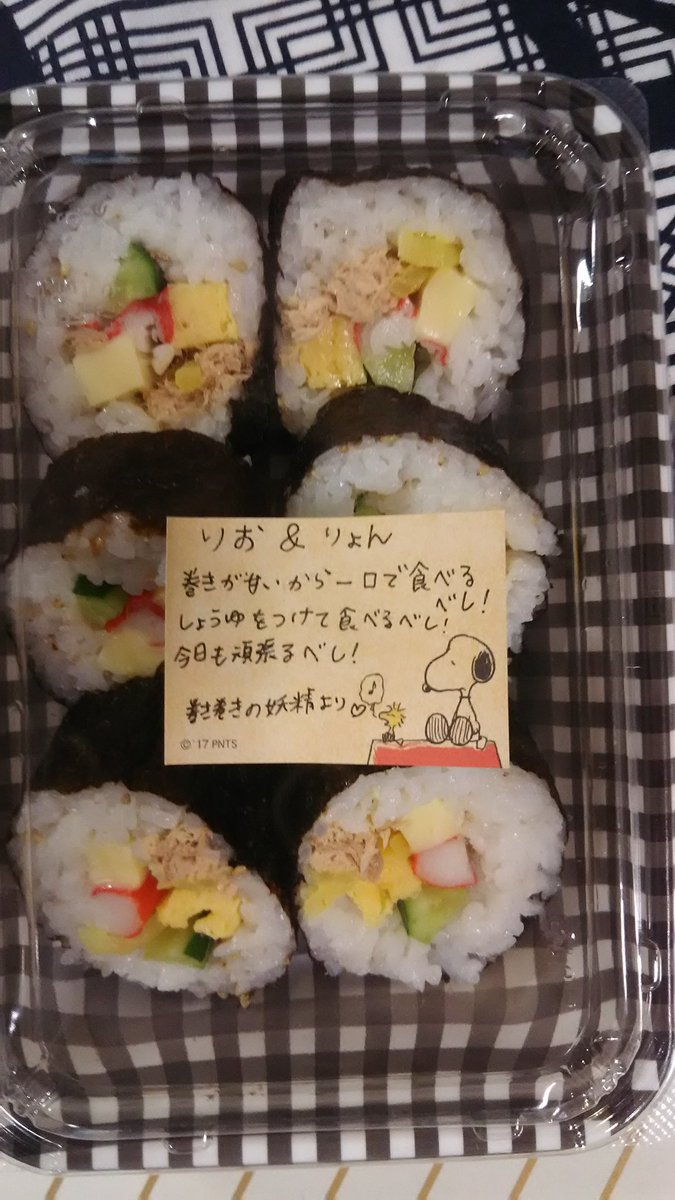 りお & りょん
巻きが甘いから一口で食べる
べし!
しょうゆをつけて食べるべし!
今日も頑張るべし!
巻き巻きの妖精より♡
♪
©'17 PNTS